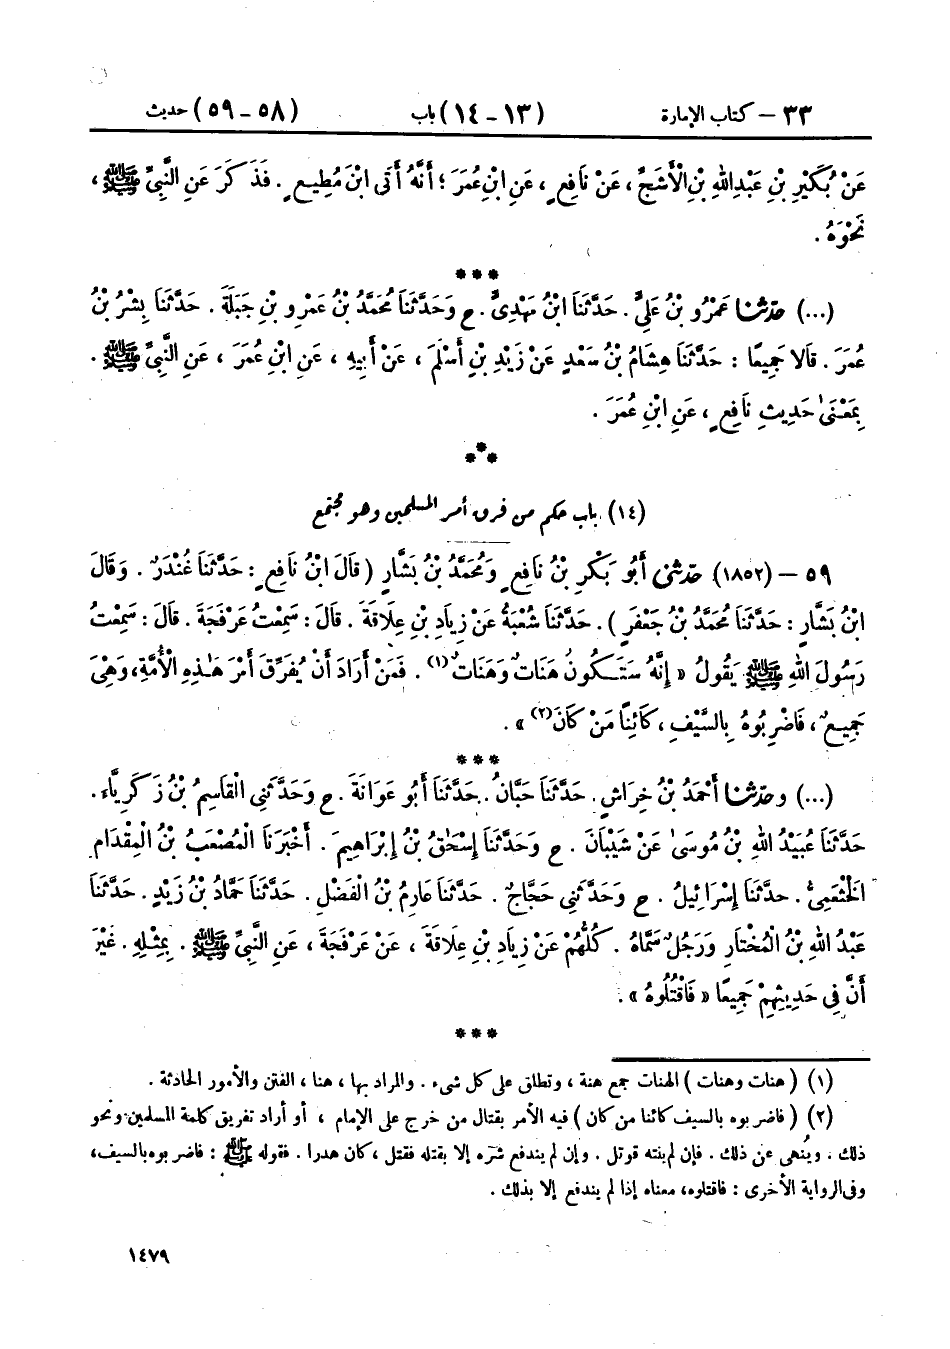 ٣٣ – كتاب الإمارة (١٣ - ١٤) باب (٥٨ - ٥٩) حديث
عَنْ بُكَيْرِ بْنِ عَبْدِاللهِ بْنِ الْأَشَجِّ ، عَنْ نَافِعٍ ، عَنِ ابْنِ عُمَرَ ؛ أَنَّهُ أَتَى ابْنَ مُطِيعٍ . فَذَكَرَ عَنِ النَّبِيِّ ﷺ ،
نَحْوَهُ .
***
(...) حدثنا عَمْرُو بْنُ عَلِيٍّ . حَدَّثَنَا ابْنُ مَهْدِيٍّ . ح وَحَدَّثَنَا مُحَمَّدُ بْنُ عَمْرِو بْنِ جَبَلَةَ . حَدَّثَنَا بِشْرُ بْنُ
عُمَرَ . قَالَا جَمِيعًا : حَدَّثَنَا هِشَامُ بْنُ سَعْدٍ عَنْ زَيْدِ بْنِ أَسْلَمَ ، عَنْ أَبِيهِ ، عَنِ ابْنِ عُمَرَ ، عَنِ النَّبِيِّ ﷺ .
بِمَعْنَى حَدِيثِ نَافِعٍ ، عَنِ ابْنِ عُمَرَ .
***
(١٤) باب حكم من فرق أمر المسلمين وهو مجتمع
٥٩ – (١٨٥٢) حدثنى أَبُو بَكْرِ بْنُ نَافِعٍ وَمُحَمَّدُ بْنُ بَشَّارٍ ( قَالَ ابْنُ نَافِعٍ : حَدَّثَنَا غُنْدَرٌ . وَقَالَ
ابْنُ بَشَّارٍ : حَدَّثَنَا مُحَمَّدُ بْنُ جَعْفَرٍ ) . حَدَّثَنَا شُعْبَةُ عَنْ زِيَادِ بْنِ عِلَاقَةَ . قَالَ : سَمِعْتُ عَرْفَجَةَ . قَالَ : سَمِعْتُ
رَسُولَ اللهِ ﷺ يَقُولُ « إِنَّهُ سَتَكُونُ هَنَاتٌ وَهَنَاتٌ(١) . فَمَنْ أَرَادَ أَنْ يُفَرِّقَ أَمْرَ هَٰذِهِ الْأُمَّةِ، وَهْيَ
جَمِيعٌ ، فَاضْرِبُوهُ بِالسَّيْفِ ، كَائِنًا مَنْ كَانَ(٢) » .
***
(...) وحدثنا أَحْمَدُ بْنُ خِرَاشٍ . حَدَّثَنَا حَبَّانُ . حَدَّثَنَا أَبُو عَوَانَةَ . ح وَحَدَّثَنِي الْقَاسِمُ بْنُ زَكَرِيَّاءَ .
حَدَّثَنَا عُبَيْدُ اللهِ بْنُ مُوسَىٰ عَنْ شَيْبَانَ . ح وَحَدَّثَنَا إِسْحَٰقُ بْنُ إِبْرَاهِيمَ . أَخْبَرَنَا الْمُصْعَبُ بْنُ الْمِقْدَامِ
الْخَثْعَمِيُّ . حَدَّثَنَا إِسْرَائِيلُ . ح وَحَدَّثَنِي حَجَّاجٌ . حَدَّثَنَا عَارِمُ بْنُ الْفَضْلِ . حَدَّثَنَا حَمَّادُ بْنُ زَيْدٍ . حَدَّثَنَا
عَبْدُ اللهِ بْنُ الْمُخْتَارِ وَرَجُلٌ سَمَّاهُ . كُلُّهُمْ عَنْ زِيَادِ بْنِ عِلَاقَةَ ، عَنْ عَرْفَجَةَ ، عَنِ النَّبِيِّ ﷺ . بِمِثْلِهِ . غَيْرَ
أَنَّ فِي حَدِيثِهِمْ جَمِيعًا « فَاقْتُلُوهُ » .
***
(١) ( هنات وهنات ) الهنات جمع هنة ، وتطلق على كل شىء . والمراد بها ، هنا ، الفتن والأمور الحادثة .
(٢) ( فاضربوه بالسيف كائنا من كان ) فيه الأمر بقتال من خرج على الإمام ، أو أراد تفريق كلمة المسلمين ونحو
ذلك . ويُنهى عن ذلك . فإن لم ينته قوتل . وإن لم يندفع شره إلا بقتله فقتل ، كان هدرا . فقوله ﷺ : فاضربوه بالسيف،
وفى الرواية الأخرى : فاقتلوه، معناه إذا لم يندفع إلا بذلك .
١٤٧٩